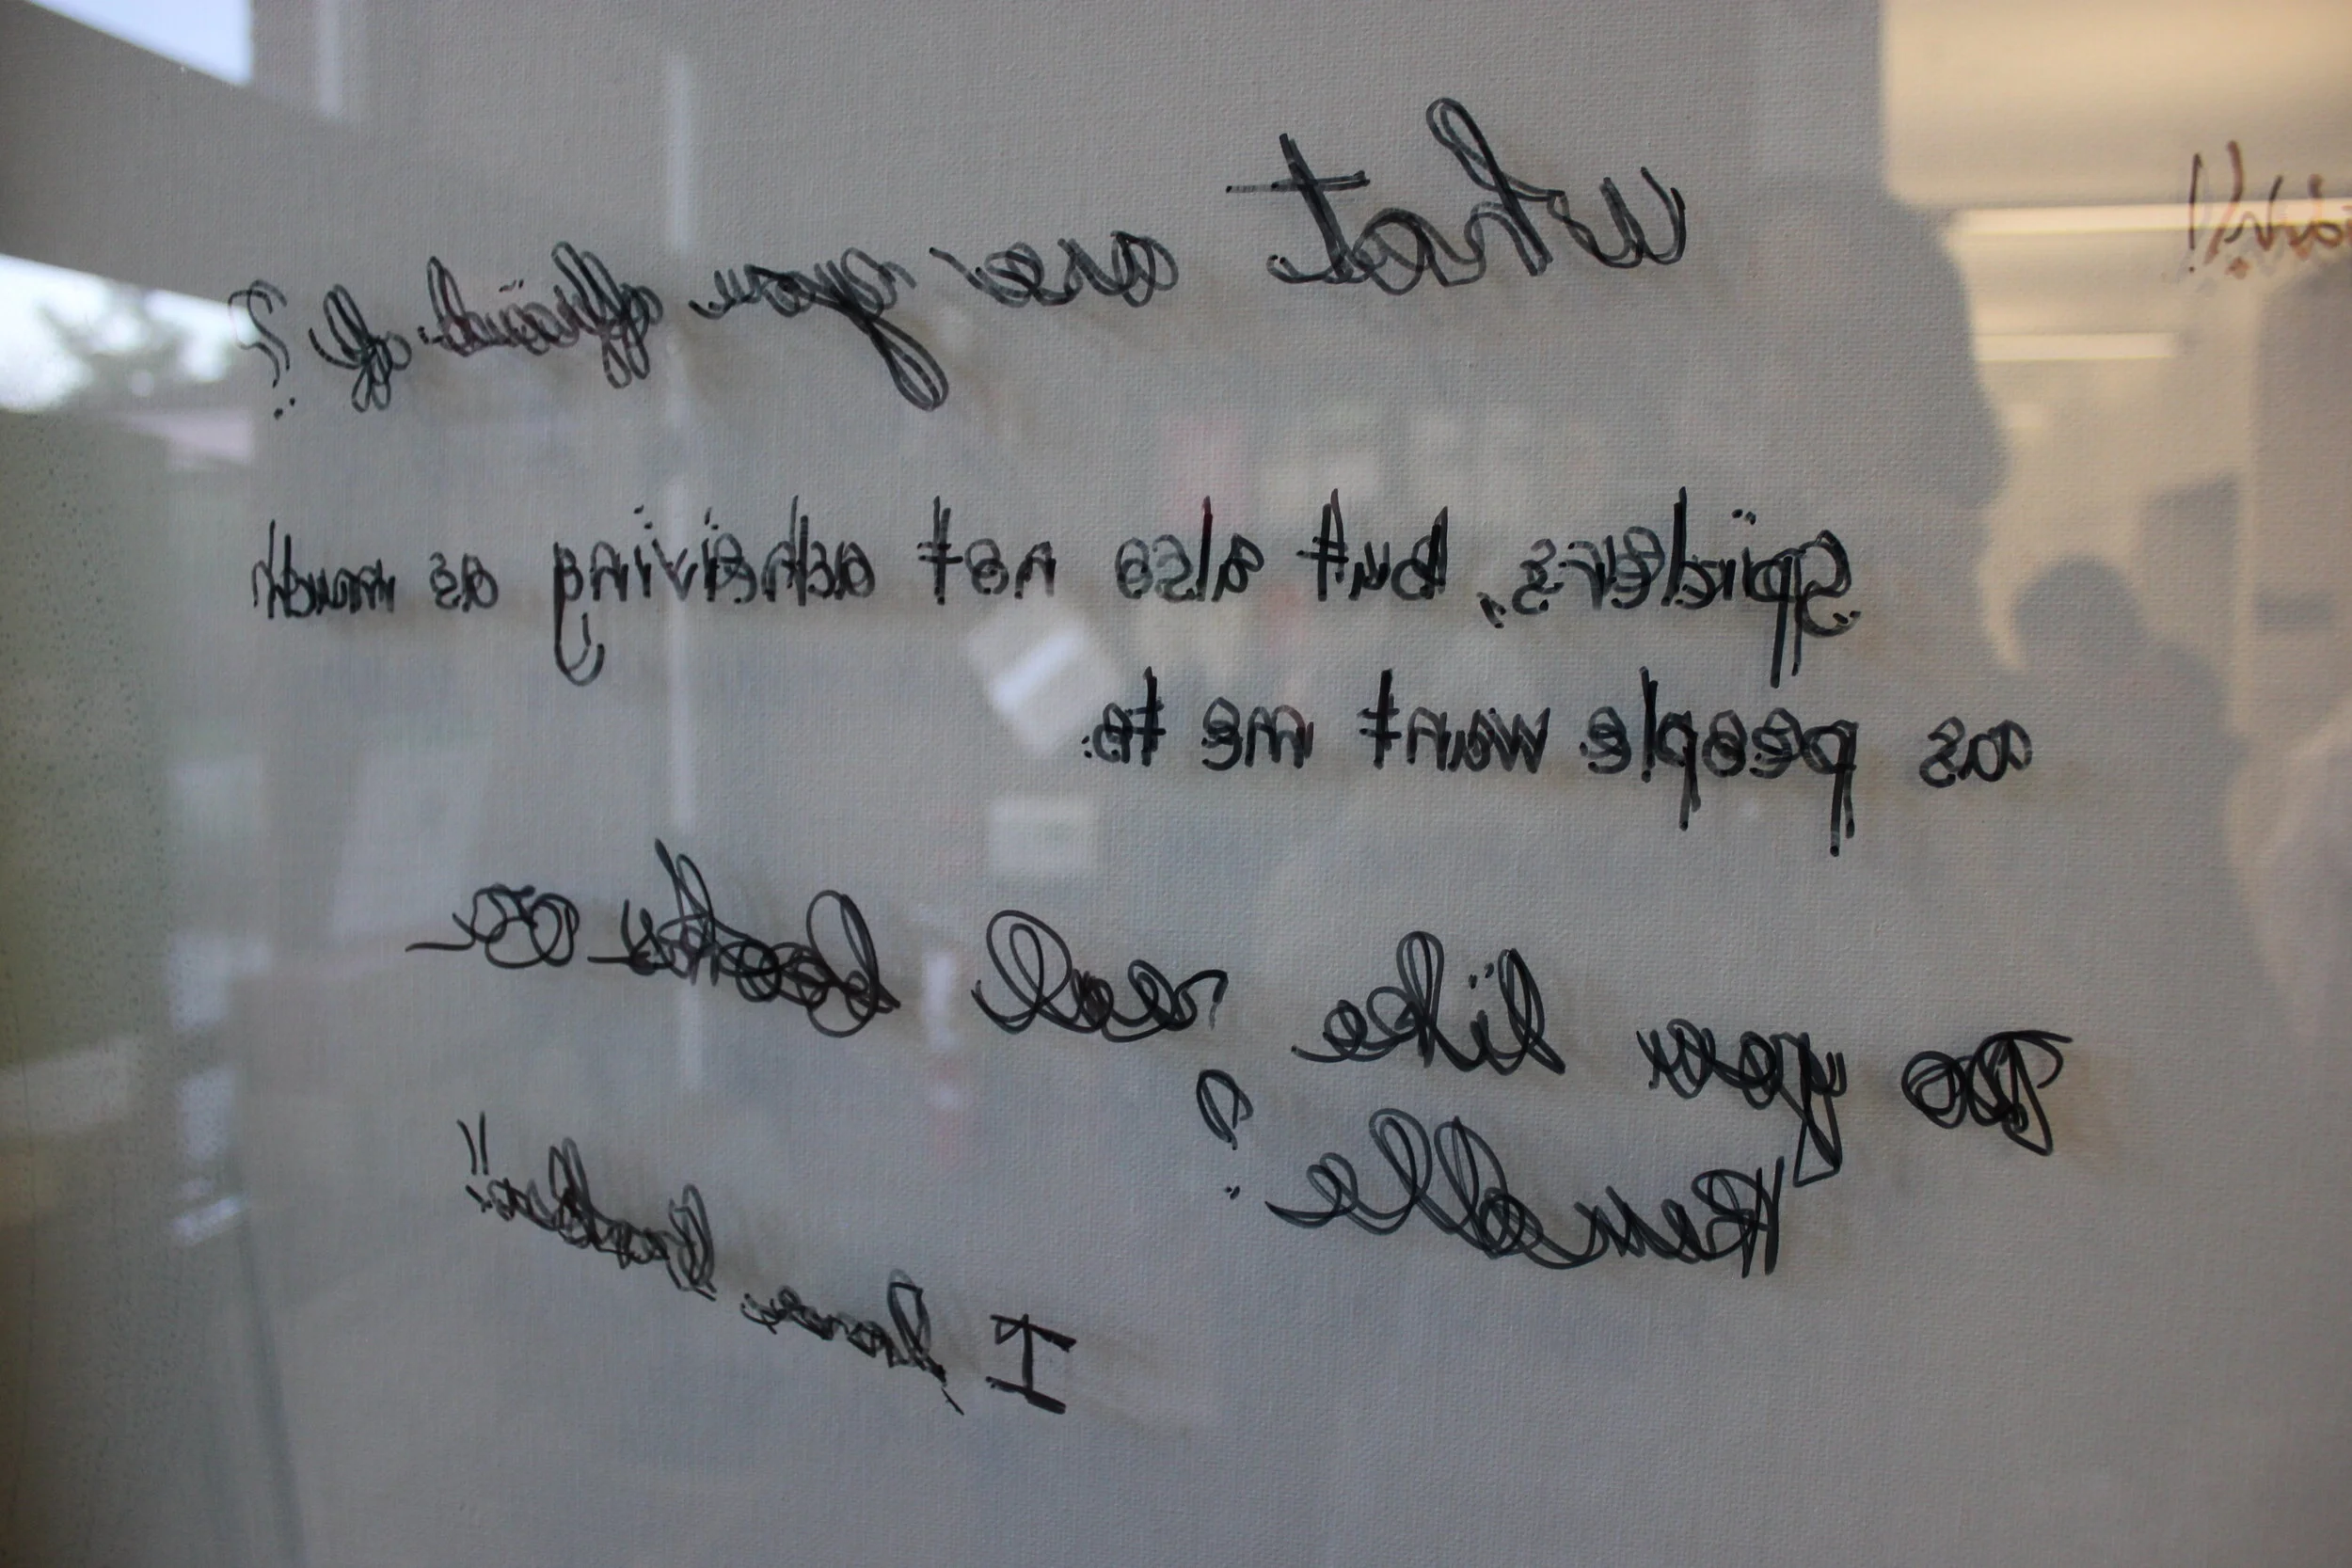 What are you affraid of?
Spiders, but also not acheiving as much
as people want me to.
Do you like real books or
Kindle?
I love books!!